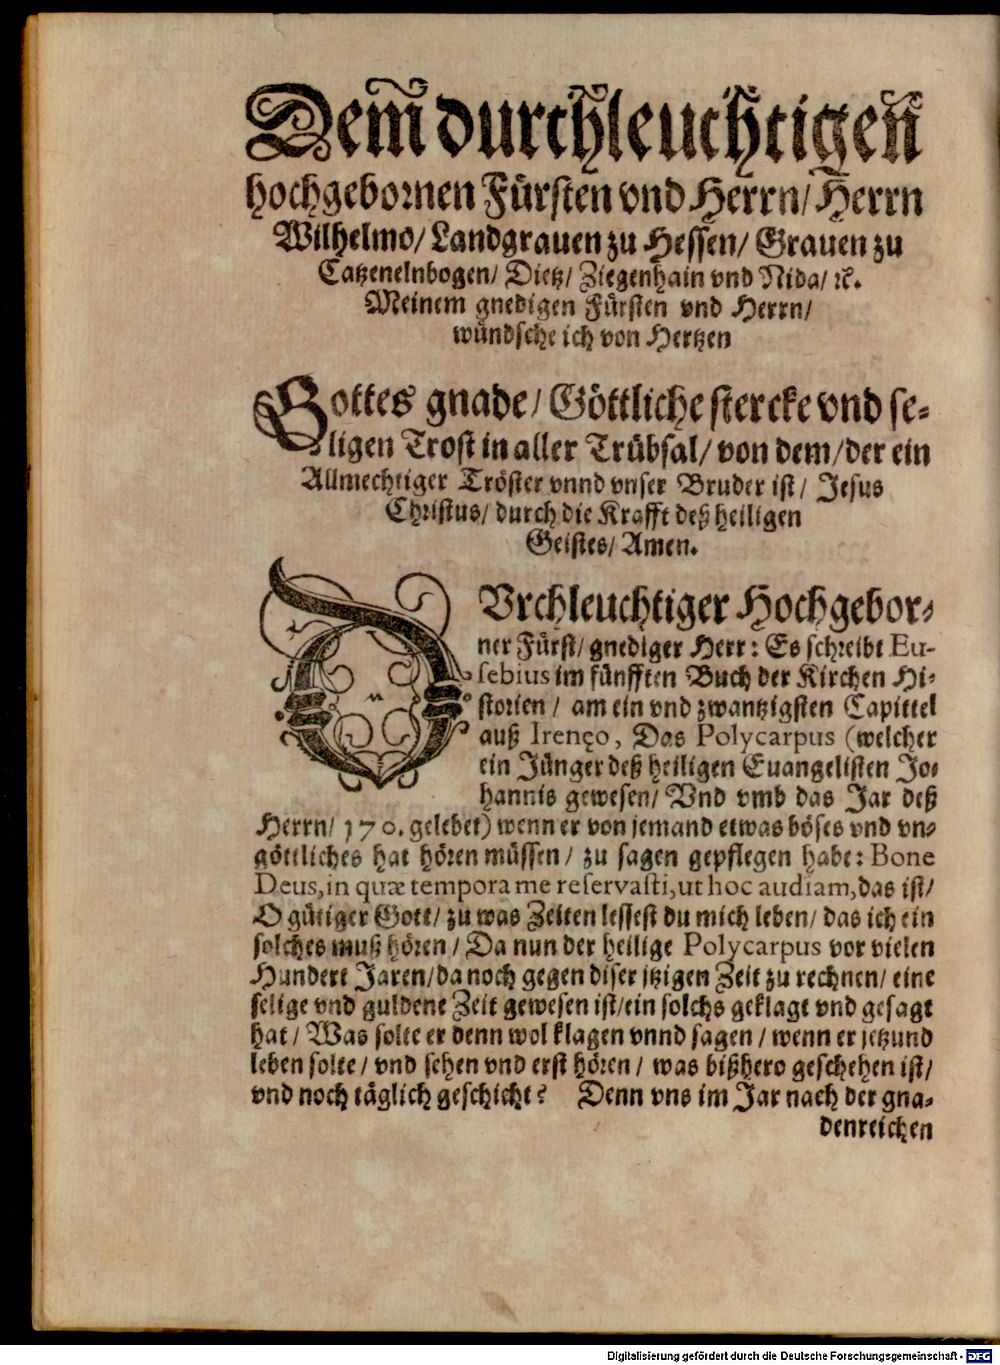 Dem̃ durchleuchtigen
hochgebornen Fürsten vnd Herrn/ Herrn
Wilhelmo/ Landgrauen zu Hessen/ Grauen zu
Catzenelnbogen/ Dietz/ Ziegenhain vnd Nida/ ꝛc.
Meinem gnedigen Fürsten vnd Herrn/
wündsche ich von Hertzen
Gottes gnade/ Göttliche stercke vnd se-
ligen Trost in aller Trübsal/ von dem/ der ein
Allmechtiger Tröster vnnd vnser Bruder ist/ Jesus
Christus/ durch die Krafft deß heiligen
Geistes/ Amen.
DVrchleuchtiger Hochgebor-
ner Fürst/ gnediger Herr: Es schreibt Eu-
sebius im fünfften Buch der Kirchen Hi-
storien/ am ein vnd zwantzigsten Capittel
auß Irenęo, Das Polycarpus (welcher
ein Jünger deß heiligen Euangelisten Jo-
hannis gewesen/ Vnd vmb das Jar deß
Herrn/ 170. gelebet) wenn er von jemand etwas böses vnd vn-
göttliches hat hören müssen/ zu sagen gepflegen habe: Bone
Deus, in quæ tempora me reservasti, ut hoc audiam, das ist/
O gütiger Gott/ zu was Zeiten lessest du mich leben/ das ich ein
solches muß hören/ Da nun der heilige Polycarpus vor vielen
Hundert Jaren/ da noch gegen diser jtzigen Zeit zu rechnen/ eine
selige vnd guldene Zeit gewesen ist/ ein solchs geklagt vnd gesagt
hat/ Was solte er denn wol klagen vnnd sagen/ wenn er jetzund
leben solte/ vnd sehen vnd erst hören/ was bißhero geschehen ist/
vnd noch täglich geschicht? Denn vns im Jar nach der gna-
denreichen
Digitalisierung gefördert durch die Deutsche Forschungsgemeinschaft - DFG